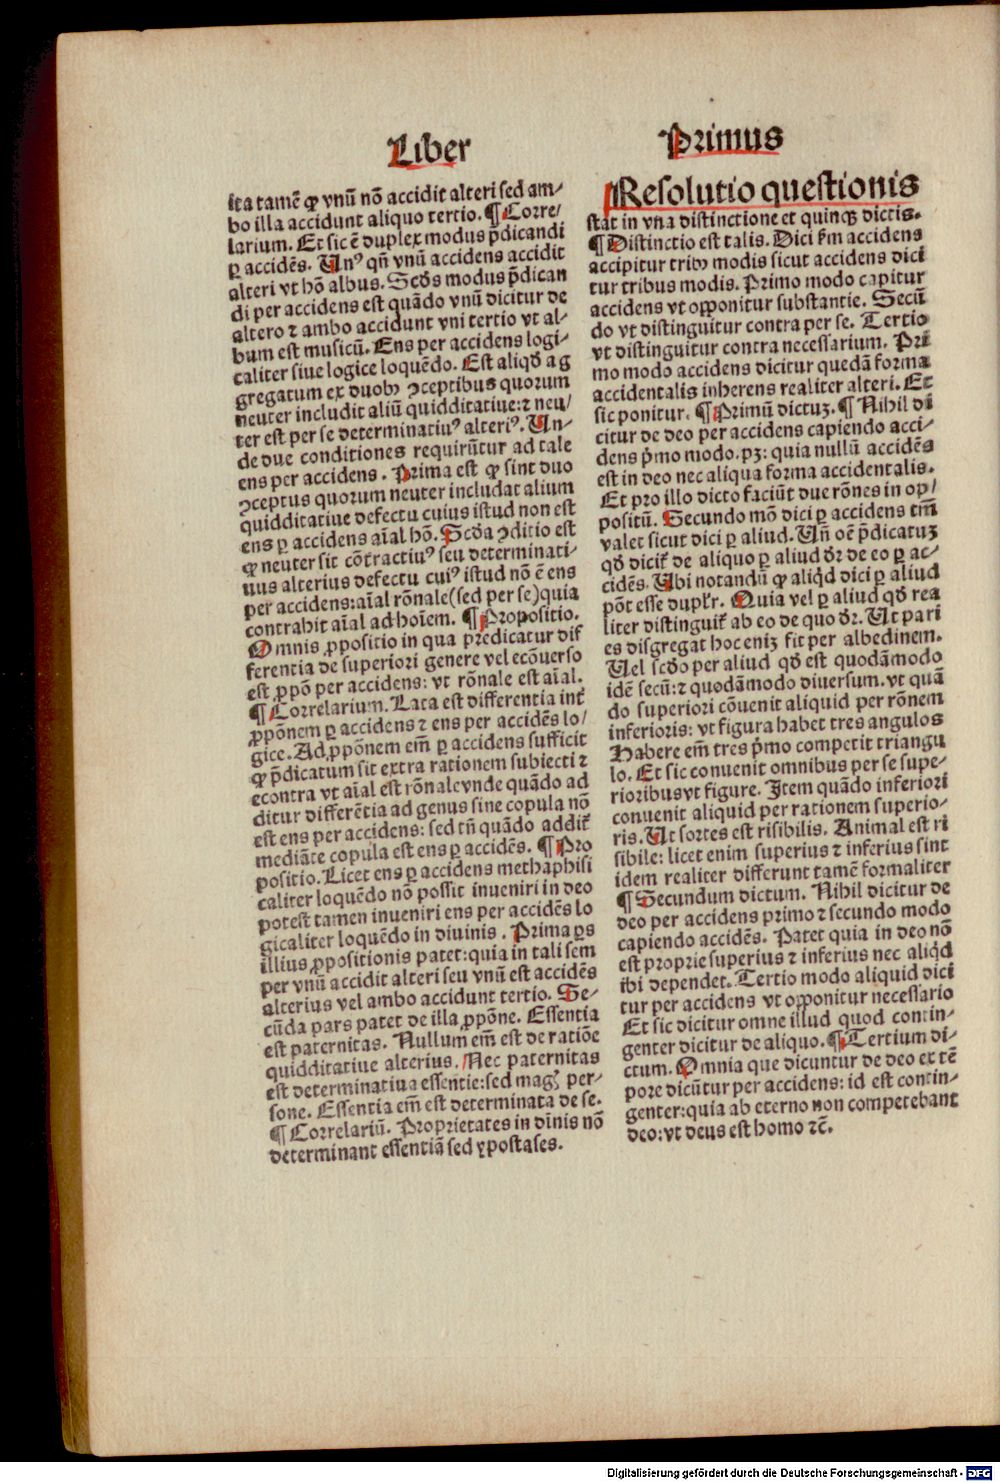 Liber
ita tamē ꝙ vnū nō accidit alteri sed am/
bo illa accidunt aliquo tertio. ¶ Corre/
larium. Et sic ē duplex modus p̄dicandi
ꝑ accidēs. Unꝰ qn̄ vnū accidens accidit
alteri vt hō albus. Scd̄s modus p̄dican
di per accidens est quādo vnū dicitur de
altero ⁊ ambo accidunt vni tertio vt al-
bum est musicū. Ens per accidens logi-
caliter siue logice loquēdo. Est aliqd̄ ag
gregatum ex duobꝫ ↄceptibus quorum
neuter includit aliū quidditatiue:⁊ neu/
ter est per se determinatiuꝰ alteriꝰ. Un-
de due conditiones requirūtur ad tale
ens per accidens. Prima est ꝙ sint duo
ↄceptus quorum neuter includat alium
quidditatiue defectu cuius istud non est
ens ꝑ accidens aīal hō. Scd̄a ↄditio est
ꝙ neuter sit cōtractiuꝰ seu determinati-
uus alterius defectu cuiꝰ istud nō ē ens
per accidens:aīal rōnale(sed per se)quia
contrahit aīal ad hoīem. ¶ Propositio.
Omnis ꝓpositio in qua predicatur dif
ferentia de superiori genere vel ecōuerso
est ꝓpō per accidens: vt rōnale est aīal.
¶ Correlarium. Lata est differentia int̄
ꝓpōnem ꝑ accidens ⁊ ens per accidēs lo/
gice. Ad ꝓpōnem em̄ ꝑ accidens sufficit
ꝙ p̄dicatum sit extra rationem subiecti ⁊
econtra vt aīal est rōnale vnde quādo ad
ditur differētia ad genus sine copula nō
est ens per accidens: sed tn̄ quādo addit᷑
mediāte copula est ens ꝑ accidēs. ¶ Pro
positio. Licet ens ꝑ accidens methaphisi
caliter loquēdo nō possit inueniri in deo
potest tamen inueniri ens per accidēs lo
gicaliter loquēdo in diuinis. Prima ꝑs
illius ꝓpositionis patet:quia in tali sem
per vnū accidit alteri seu vnū est accidēs
alterius vel ambo accidunt tertio. Se-
cūda pars patet de illa ꝓpōne. Essentia
est paternitas. Nullum em̄ est de ratiōe
quidditatiue alterius. Nec paternitas
est determinatiua essentie:sed mag̛ per-
sone. Essentia em̄ est determinata de se.
¶ Correlariū. Proprietates in dīnis nō
determinant essentiā sed ypostases.
Primus
¶ Resolutio questionis
stat in vna distinctione et quinqꝫ dictis.
¶ Distinctio est talis. Dici ꝑm accidens
accipitur tribꝫ modis sicut accidens dici
tur tribus modis. Primo modo capitur
accidens vt opponitur substantie. Secū
do vt distinguitur contra per se. Tertio
vt distinguitur contra necessarium. Pri
mo modo accidens dicitur quedā forma
accidentalis inherens realiter alteri. Et
sic ponitur. ¶ Primū dictuꝫ. ¶ Nihil di
citur de deo per accidens capiendo acci-
dens p̄mo modo. pꝫ: quia nullū accidēs
est in deo nec aliqua forma accidentalis.
Et pro illo dicto faciūt due rōnes in op/
positū. Secundo mō dici ꝑ accidens tm̄
valet sicut dici ꝑ aliud. Un̄ oē p̄dicatuꝫ
qd̄ dicit᷑ de aliquo ꝑ aliud dr̄ de eo ꝑ ac-
cidēs. Ubi notandū ꝙ aliqd̄ dici ꝑ aliud
pōt esse dupl̄r. Quia vel ꝑ aliud qd̄ rea
liter distinguit᷑ ab eo de quo dr̄. Ut pari
es disgregat hoc eniꝫ fit per albedinem.
Uel scd̄o per aliud qd̄ est quodāmodo
idē secū:⁊ quodāmodo diuersum. vt quā
do superiori cōuenit aliquid per rōnem
inferioris: vt figura habet tres angulos
Habere em̄ tres p̄mo competit triangu
lo. Et sic conuenit omnibus per se supe-
rioribus vt figure. Item quādo inferiori
conuenit aliquid per rationem superio-
ris. Ut sortes est risibilis. Animal est ri
sibile: licet enim superius ⁊ inferius sint
idem realiter differunt tamē formaliter
¶ Secundum dictum. Nihil dicitur de
deo per accidens primo ⁊ secundo modo
capiendo accidēs. Patet quia in deo nō
est proprie superius ⁊ inferius nec aliqd̄
ibi dependet. Tertio modo aliquid dici
tur per accidens vt opponitur necessario
Et sic dicitur omne illud quod contin-
genter dicitur de aliquo. ¶ Tertium di-
ctum. Omnia que dicuntur de deo ex tē
pore dicūtur per accidens: id est contin-
genter:quia ab eterno non competebant
deo:vt deus est homo ⁊c̄.
Digitalisierung gefördert durch die Deutsche Forschungsgemeinschaft - DFG